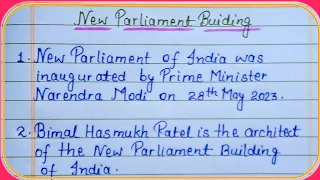 New Parliament Buiding
1. New Parliament of India was
inaugurated by Prime Minister
Narendra Modi on 28th May 2023.
2. Bimal Hasmukh Patel is the architect
of the New Parliament Building
of India.